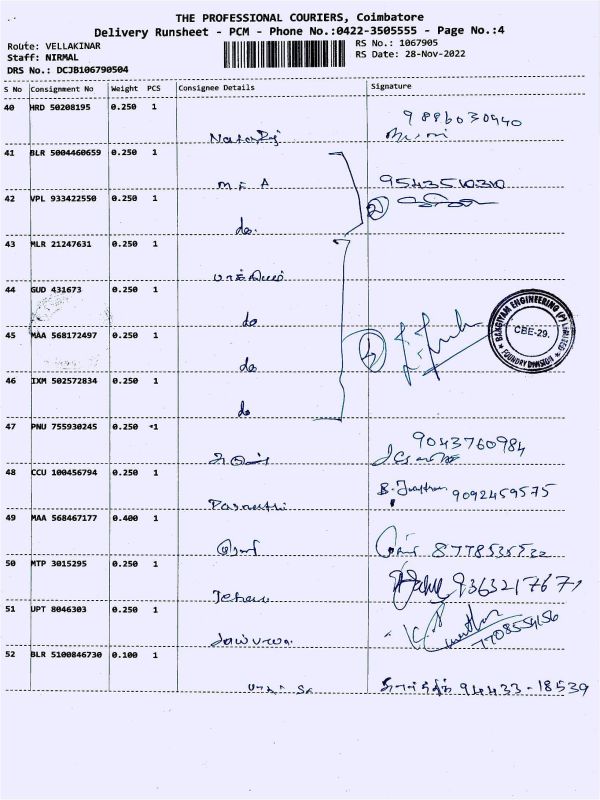 THE PROFESSIONAL COURIERS, Coimbatore
Delivery Runsheet - PCM - Phone No.:0422-3505555 - Page No.:4
Route: VELLAKINAR RS No.: 1067905
Staff: NIRMAL RS Date: 28-Nov-2022
DRS No.: DCJB106790504
S No Consignment No Weight PCS Consignee Details Signature
40 HRD 50208195 0.250 1
9886030940
41 BLR 5004460659 0.250 1
M.F.A 9543510310
42 VPL 933422550 0.250 1 2
do.
43 MLR 21247631 0.250 1
பாக்கியம்
44 GUD 431673 0.250 1
do
BAKGIYAM ENGINEERING (P) LIMITED
CBE-29.
FOUNDRY DIVISION
45 MAA 568172497 0.250 1
do
46 IXM 502572834 0.250 1
do
47 PNU 755930245 0.250 1
9043760984
48 CCU 100456794 0.250 1
9092459575
49 MAA 568467177 0.400 1
8778535532
50 MTP 3015295 0.250 1
9363217671
51 UPT 8046303 0.250 1
7708554156
52 BLR 5100846730 0.100 1
94433-18539